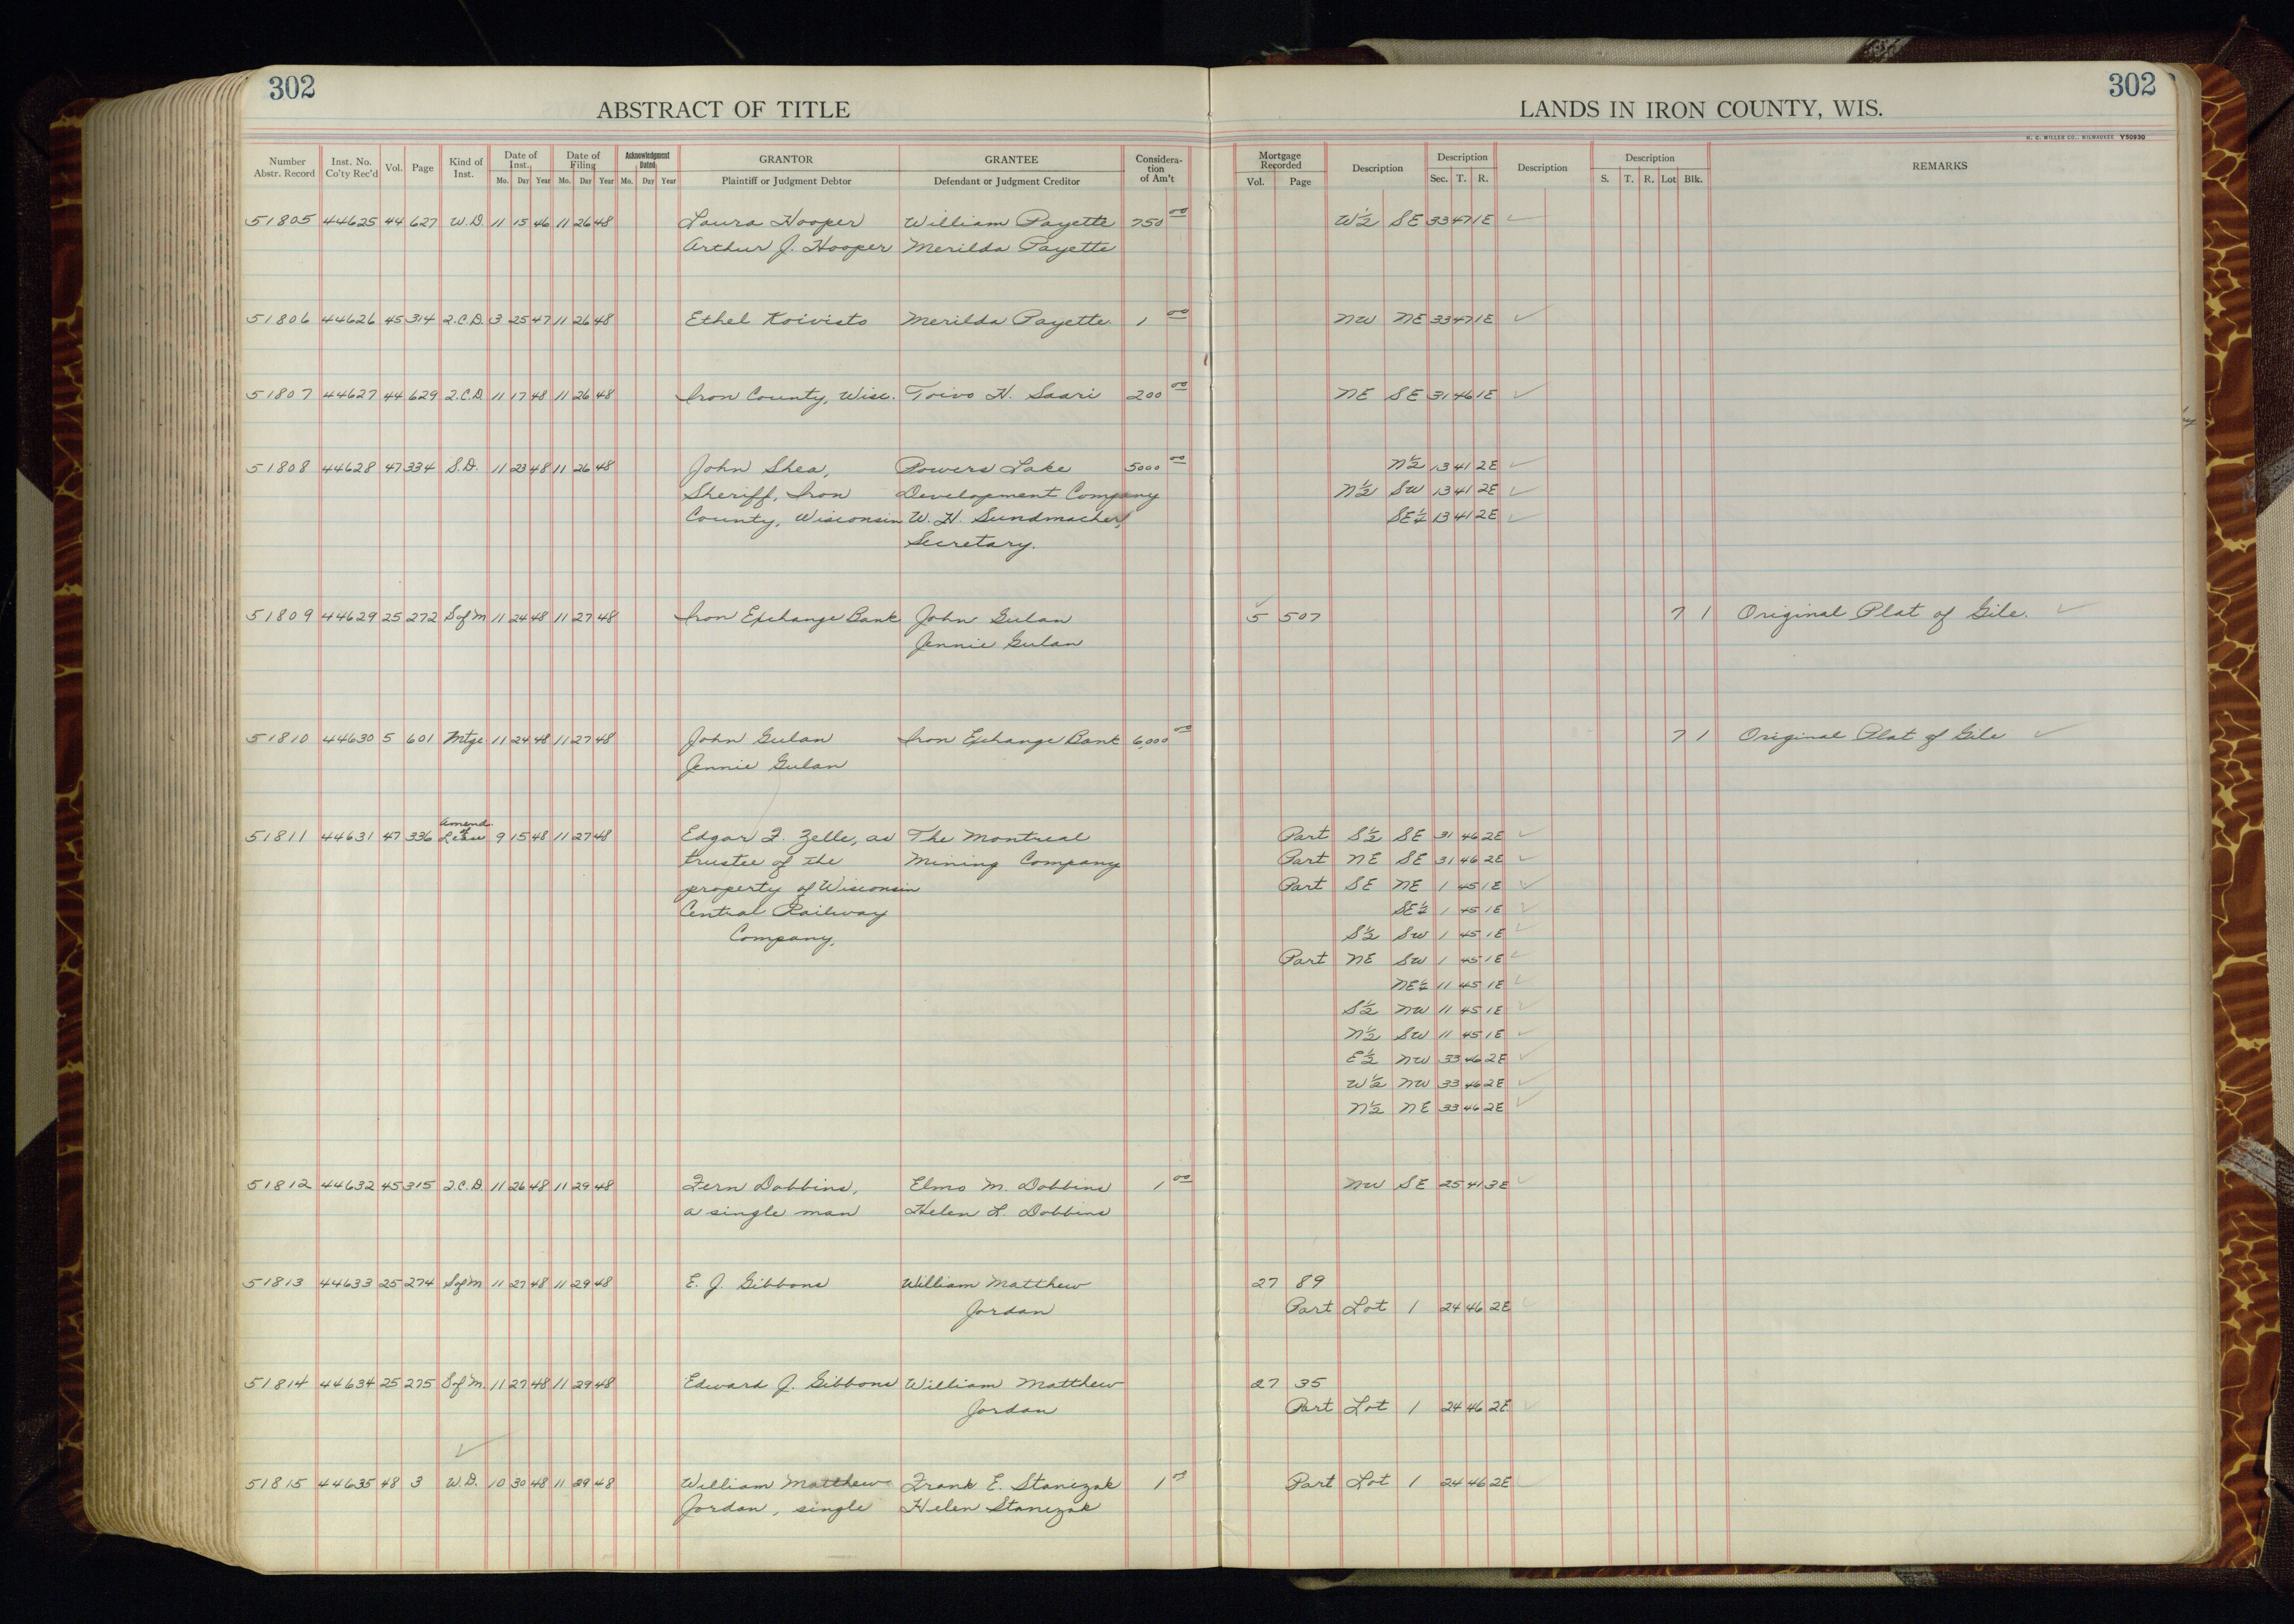 302
ABSTRACT OF TITLE
LANDS IN IRON COUNTY, WIS.
302
H. C. MILLER CO., MILWAUKEE Y50930
Number Abstr. Record Inst. No. Co'ty Rec'd Vol. Page Kind of Inst. Date of Inst. Mo. Day Year Date of Filing Mo. Day Year Acknowledgment Dated Mo. Day Year GRANTOR Plaintiff or Judgment Debtor GRANTEE Defendant or Judgment Creditor Considera-tion of Am't Mortgage Recorded Vol. Page Description Description Sec. T. R. Description Description S. T. R. Lot Blk. REMARKS
51805 44625 44 627 W.D. 11 15 46 11 26 48 Laura Hooper William Payette 750 00 W½ SE 33 47 1E ✓
Arthur J. Hooper Merilda Payette
51806 44626 45 314 2.C.D. 3 25 47 11 26 48 Ethel Koivisto Merilda Payette. 1 00 NW NE 33 47 1E ✓
51807 44627 44 629 2.C.D. 11 17 48 11 26 48 Iron County, Wisc. Toivo H. Saari 200 00 NE SE 31 46 1E ✓
51808 44628 47 334 S.D. 11 23 48 11 26 48 John Shea, Powers Lake 5000 00 N½ 13 41 2E ✓
Sheriff, Iron Development Company N½ SW 13 41 2E ✓
County, Wisconsin W. H. Sundmacher, SE¼ 13 41 2E ✓
Secretary.
51809 44629 25 272 S of M 11 24 48 11 27 48 Iron Exchange Bank John Gulan 5 507 7 1 Original Plat of Gile. ✓
Jennie Gulan
51810 44630 5 601 Mtge 11 24 48 11 27 48 John Gulan Iron Exchange Bank 6,000 00 7 1 Original Plat of Gile ✓
Jennie Gulan
51811 44631 47 336 Amend. of Lease 9 15 48 11 27 48 Edgar F. Zelle, as The Montreal Part S½ SE 31 46 2E ✓
trustee of the Mining Company Part NE SE 31 46 2E ✓
property of Wisconsin Part SE NE 1 45 1E ✓
Central Railway SE¼ 1 45 1E ✓
Company, S½ SW 1 45 1E ✓
Part NE SW 1 45 1E ✓
NE¼ 11 45 1E ✓
S½ NW 11 45 1E ✓
N½ SW 11 45 1E ✓
E½ NW 33 46 2E ✓
W½ NW 33 46 2E ✓
N½ NE 33 46 2E ✓
51812 44632 45 315 2.C.D. 11 26 48 11 29 48 Fern Dobbins, Elmo M. Dobbins 1 00 NW SE 25 41 3E ✓
a single man Helen L. Dobbins
51813 44633 25 274 S of M 11 27 48 11 29 48 E. J. Gibbons William Matthew 27 89
Jordan Part Lot 1 24 46 2E ✓
51814 44634 25 275 S of M. 11 27 48 11 29 48 Edward J. Gibbons William Matthew 27 35
Jordan Part Lot 1 24 46 2E ✓
51815 44635 48 3 W.D. 10 30 48 11 29 48 William Matthew Frank E. Stanczak 1 00 Part Lot 1 24 46 2E ✓
Jordan, single Helen Stanczak